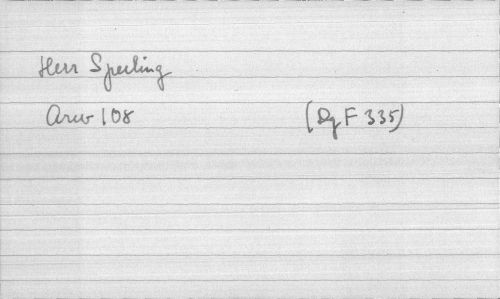 Herr Sperling
Arw 108 (DgF 335)